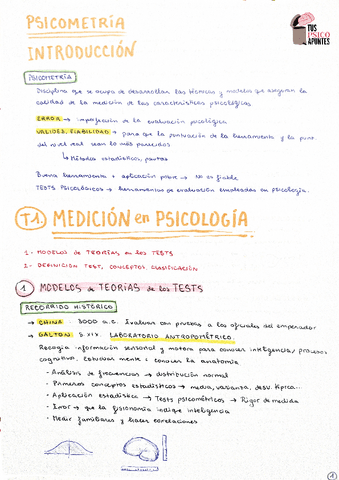 PSICOMETRÍA
TUS
PSICO
APUNTES
INTRODUCCIÓN
PSICOMETRÍA
Disciplina que se ocupa de desarrollar las técnicas y modelos que aseguran la
calidad de la medición de las características psicológicas.
ERROR → imperfección de la evaluación psicológica
VALIDEZ, FIABILIDAD → para que la puntuación de la herramienta y la punt.
del nivel real sean lo más parecidos
↳ Métodos estadísticos, pautas
Buena herramienta + aplicación pobre → no es fiable
TESTS PSICOLÓGICOS → herramientas de evaluación empleadas en psicología.
T1 MEDICIÓN en PSICOLOGÍA
1- MODELOS de TEORÍAS de los TESTS
2- DEFINICIÓN TEST, CONCEPTOS, CLASIFICACIÓN
1 MODELOS de TEORÍAS de los TESTS
RECORRIDO HISTÓRICO
→ CHINA 3000 a.C. Evalúan con pruebas a los oficiales del emperador
→ GALTON S.XIX LABORATORIO ANTROPOMÉTRICO
Recogía información sensorial y motora para conocer inteligencia, procesos
cognitivo. Estudiar mente = conocer la anatomía
- Análisis de frecuencias → distribución normal
- Primeros conceptos estadísticos → media, varianza, desv. típica...
- Aplicación estadística → Tests psicométricos → Rigor de medida
- Error → que la fisionomía indique inteligencia
- Medir familiares y hacer correlaciones
1